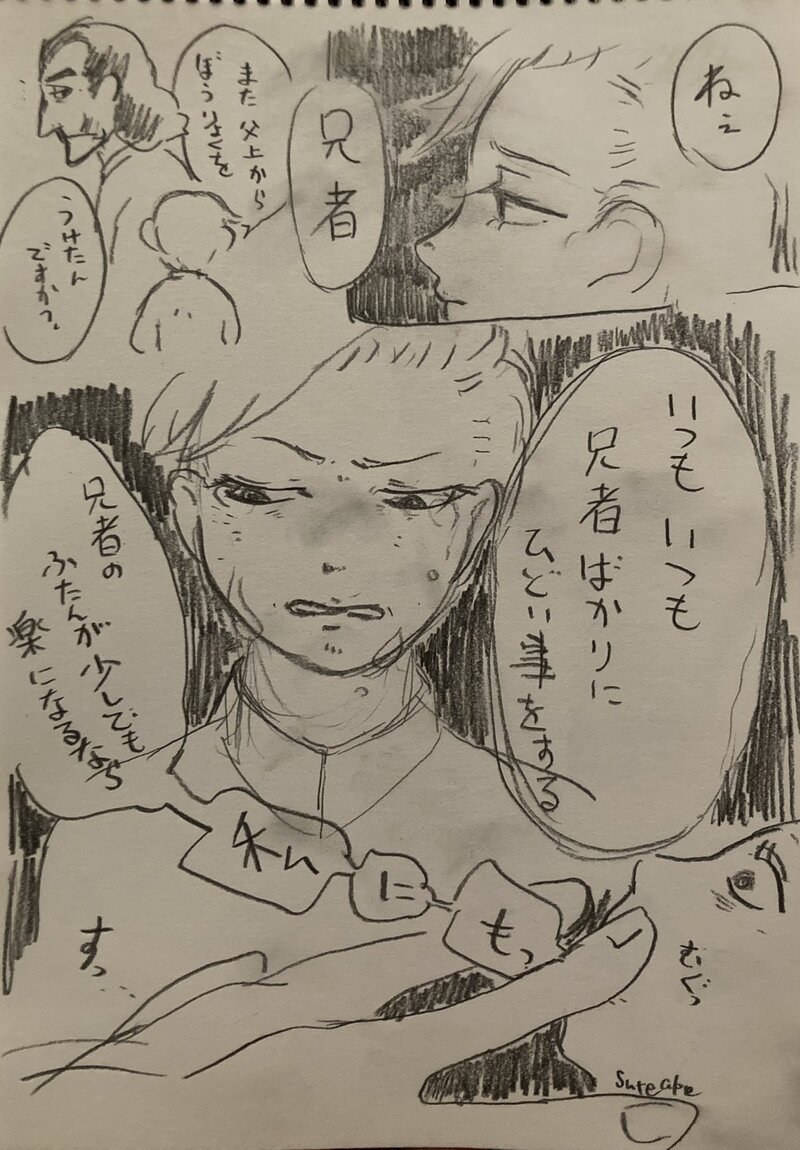 ねぇ
兄者
また 父上から
ぼうりょくを
うけたん
ですかっ
いつもいつも
兄者ばかりに
ひどい事をする
兄者の
ふたんが少しでも
楽になるなら
私
に
もっ
すっ
むぐっ